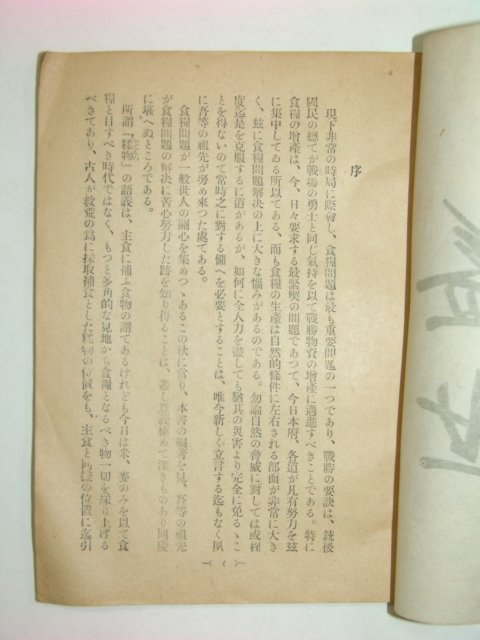 序
現下非常の時局に際會し、食糧問題は最も重要問題の一つであり、戰勝の要訣は、銃後
國民の總てが戰場の勇士と同じ氣持を以て戰勝物資の增產に邁進すべきことである。特に
食糧の增產は、今、日々要求する最緊喫の問題であつて、今日本府、各道が凡有努力を玆
に集中してゐる所以である。而も食糧の生產は自然的條件に左右される部面が非常に大き
く、玆に食糧問題解決の上に大きな惱みがあるのである。勿論自然の脅威に對しては或程
度迄是を克服するに道があるが、如何に全人力を盡しても猶其の災害より完全に免るゝこ
とを得ないので常時之に對する備へを必要とすることは、唯今新しく立言する迄もなく夙
に吾等の祖先が努め來つた處である。
食糧問題が一般世人の關心を集めつゝあるこの秋に當り、本書の編著を見、吾等の祖先
が食糧問題の解決に苦心努力した跡を知り得ることは、意義極めて深きものあり同慶
に堪へぬところである。
所謂「糅物」の語義は、主食に補ふ食物の謂であるけれども今日は米、麥のみを以て食
糧と目すべき時代ではなく、もつと多角的な見地から食糧となるべき物一切を採り上げる
べきであり、古人が救荒の爲に採取補食とした糅物の位置をも、主食と同樣の位置に迄引